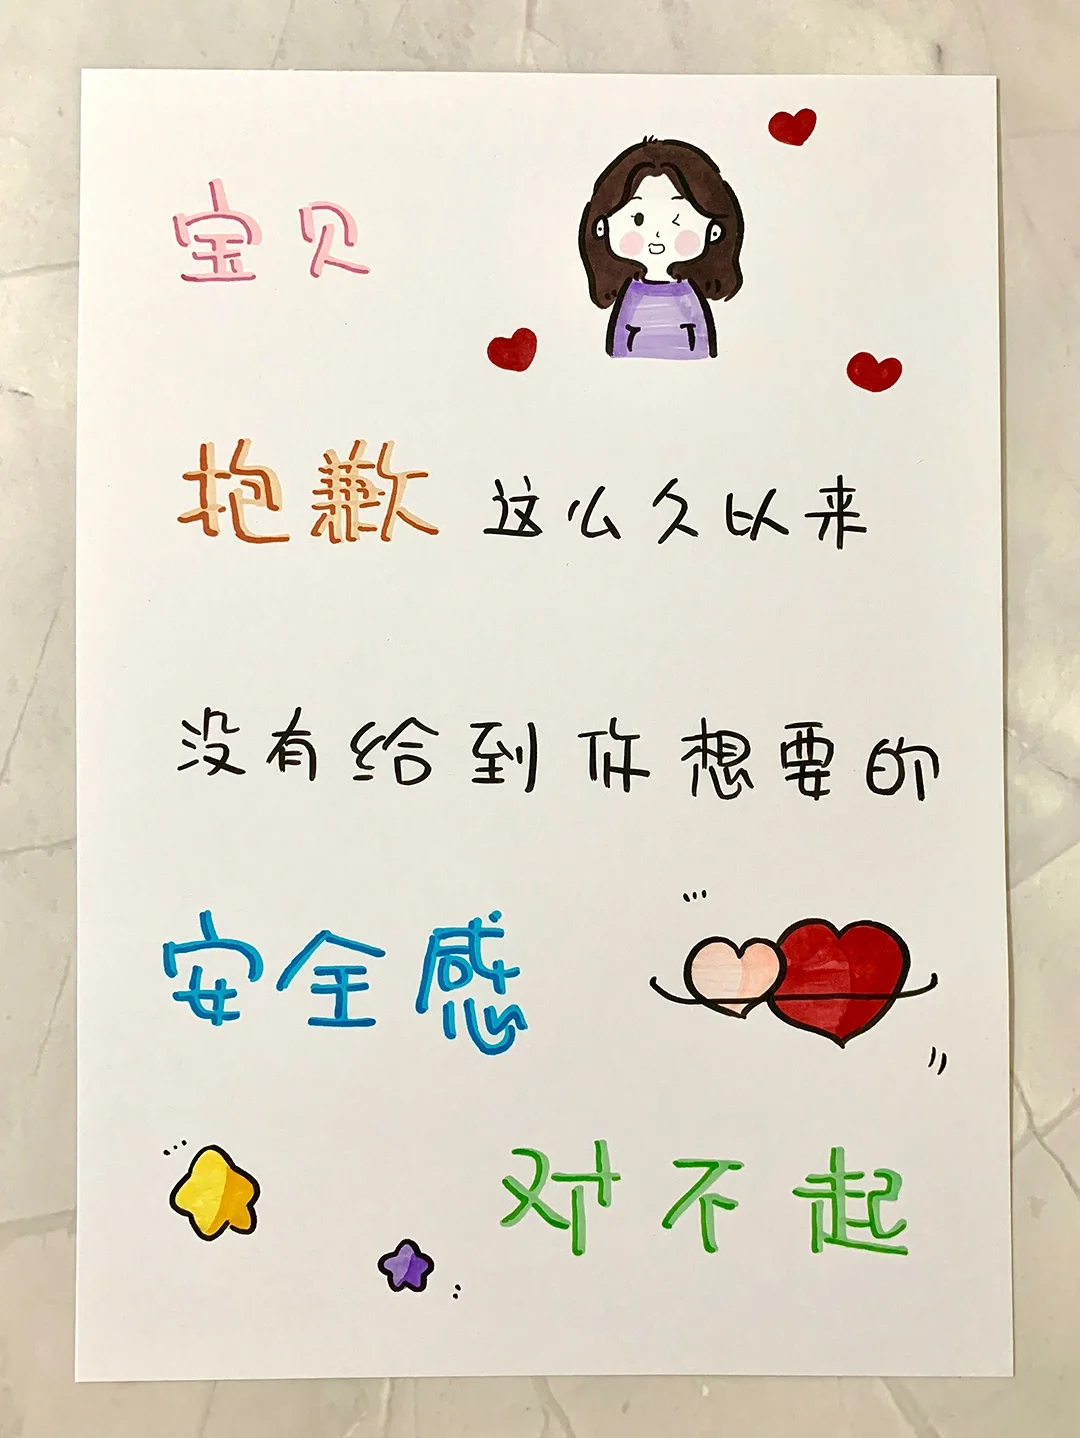 宝贝
抱歉 这么久以来
没有给到你想要的
安全感
对不起